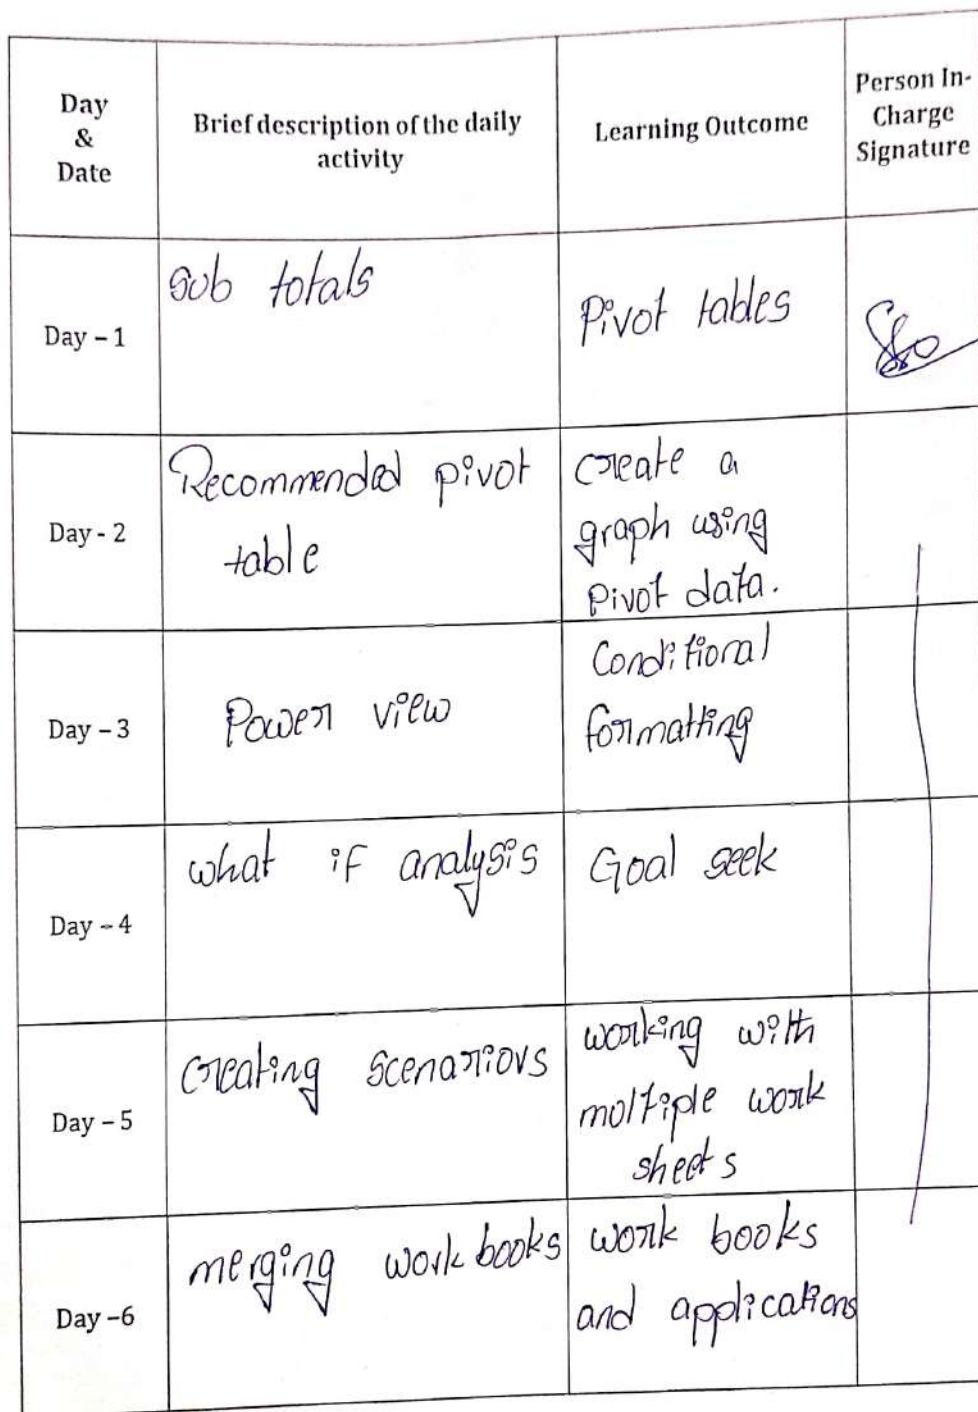 Day
&
Date
Brief description of the daily
activity
Learning Outcome
Person In-
Charge
Signature
Day – 1
Sub totals
Pivot tables
Day - 2
Recommended pivot
table
create a
graph using
Pivot data.
Day – 3
Power view
Conditional
formatting
Day – 4
what if analysis
Goal seek
Day – 5
creating scenariovs
working with
moltiple work
sheets
Day –6
merging work books
work books
and applications